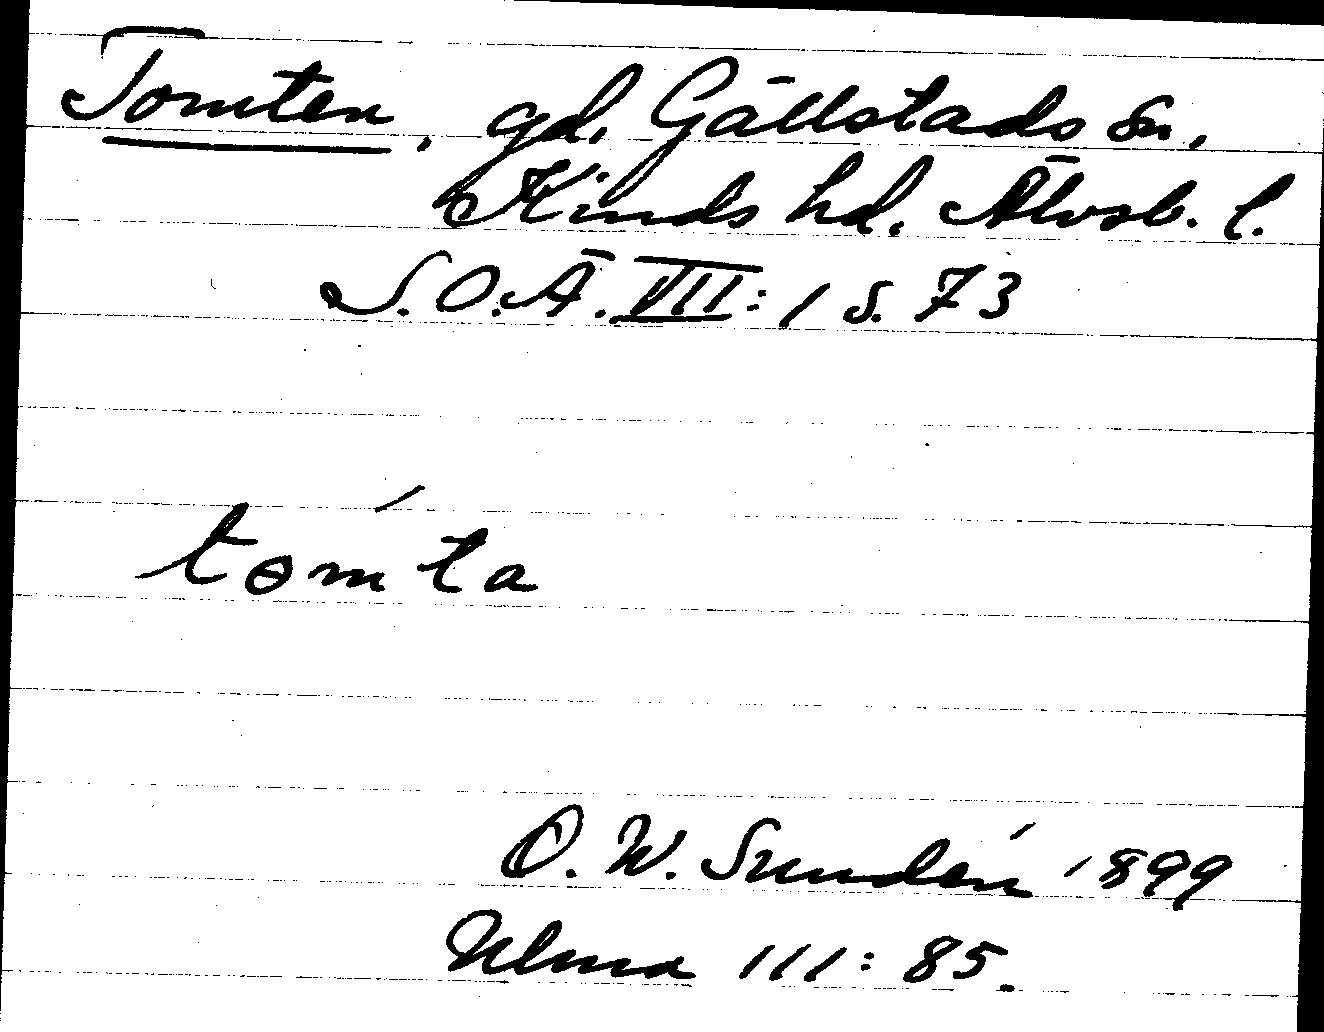 Tomten, gd. Gällstads sn,
Kinds hd. Älvsb. l.
S.O.Ä. VII: 1 s. 73
tɵm´ta
O. W. Sundén 1899
Ulma 111: 85.